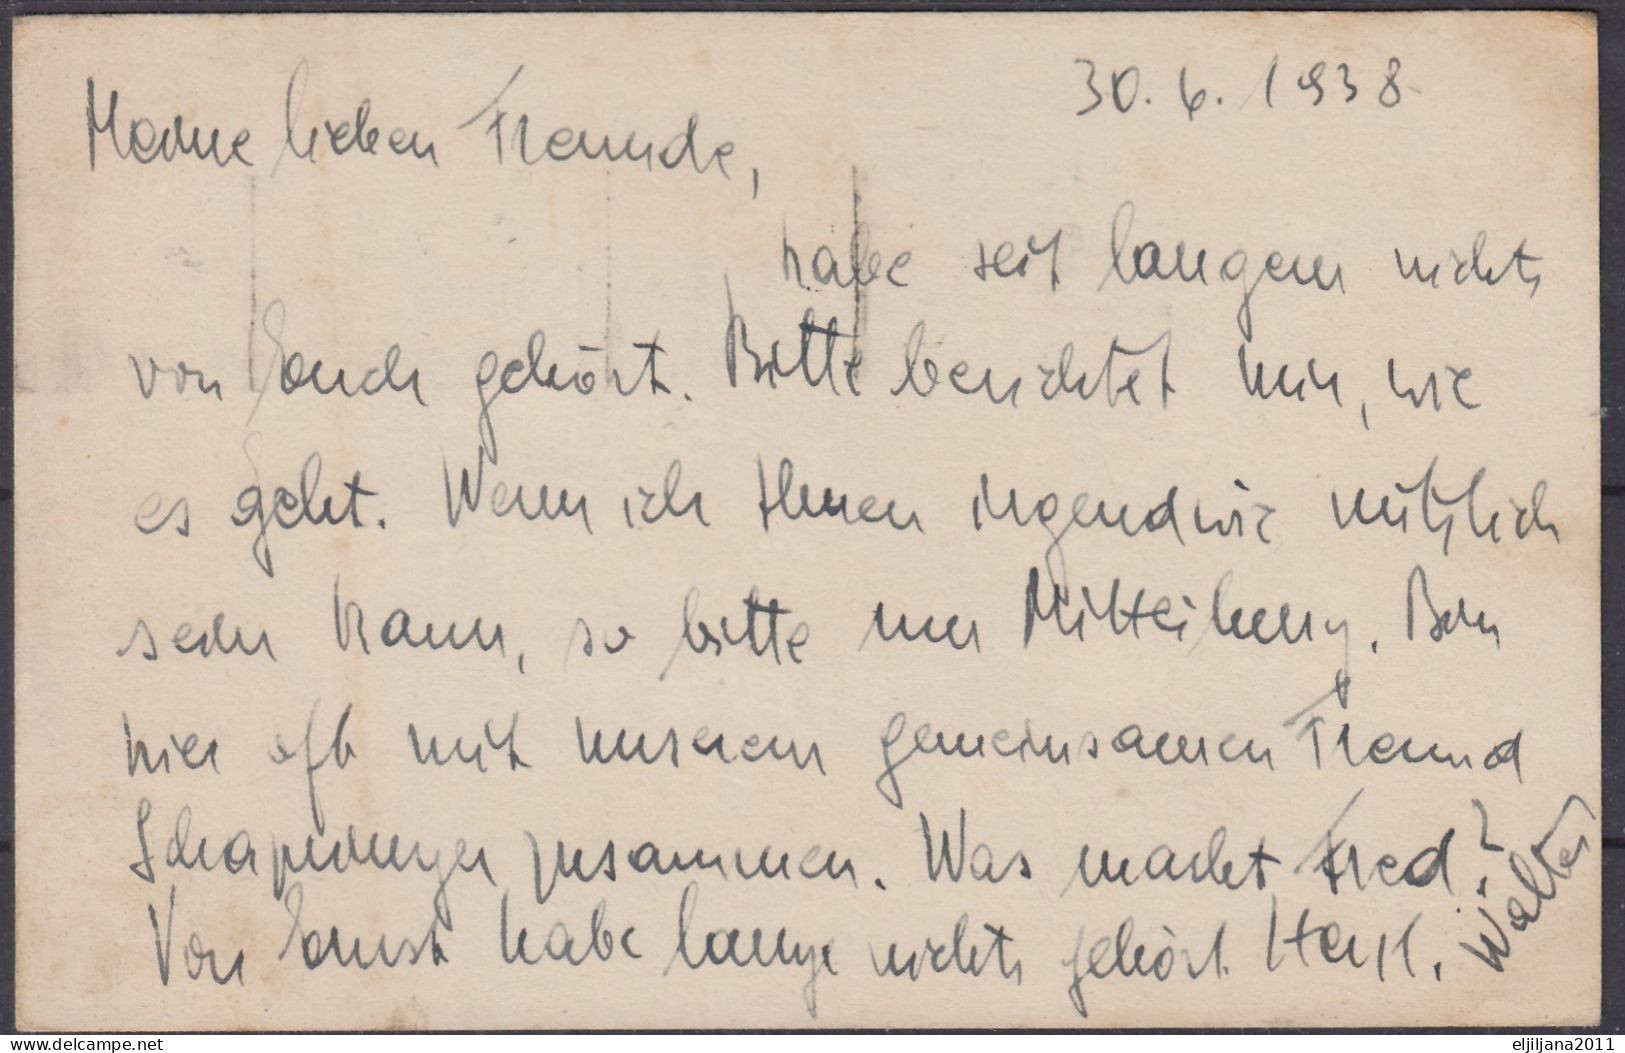 30.6.1938
Meine lieben Freunde,
habe seit langem nichts
von Euch gehört. Bitte berichtet mir, wie
es geht. Wenn ich Ihnen irgendwie nützlich
sein kann, so bitte um Mitteilung. Bin
hier oft mit unserem gemeinsamen Freund
zusammen. Was macht Fred?
Von Ernst habe lange nichts gehört. Herzl.
Walter
eljiljana2011
www.delcampe.net